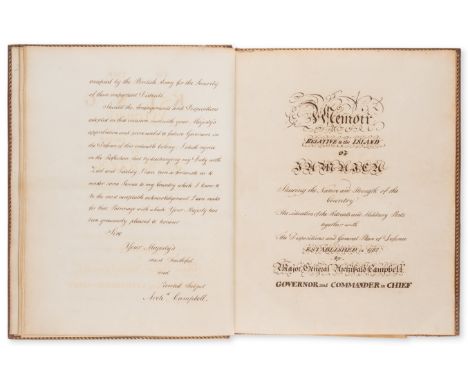 occupied by the British Army for the Security
of those important Districts.
Should the Arrangements and Dispositions
adopted on that occasion meet with your Majesty's
approbation and prove useful to future Governors in
the Defence of this valuable Colony I shall rejoice
in the Reflection that by discharging my Duty with
Zeal and Fidelity I have been able to
render some Service to my Country which I know to
be the most acceptable acknowledgement I can make
for that Patronage with which Your Majesty has
been graciously pleased to honour
Sire
Your Majesty's
most Faithful
and
Devoted Subject
Arch.d Campbell.
Memoir
RELATIVE to the ISLAND
OF
JAMAICA
Shewing the Nature and Strength of the
Country
The Situation of the Harbours and Military Posts
together with
The Dispositions and General Plan of Defence
ESTABLISHED in 1782
by
Major General Archibald Campbell
GOVERNOR and COMMANDER in CHIEF